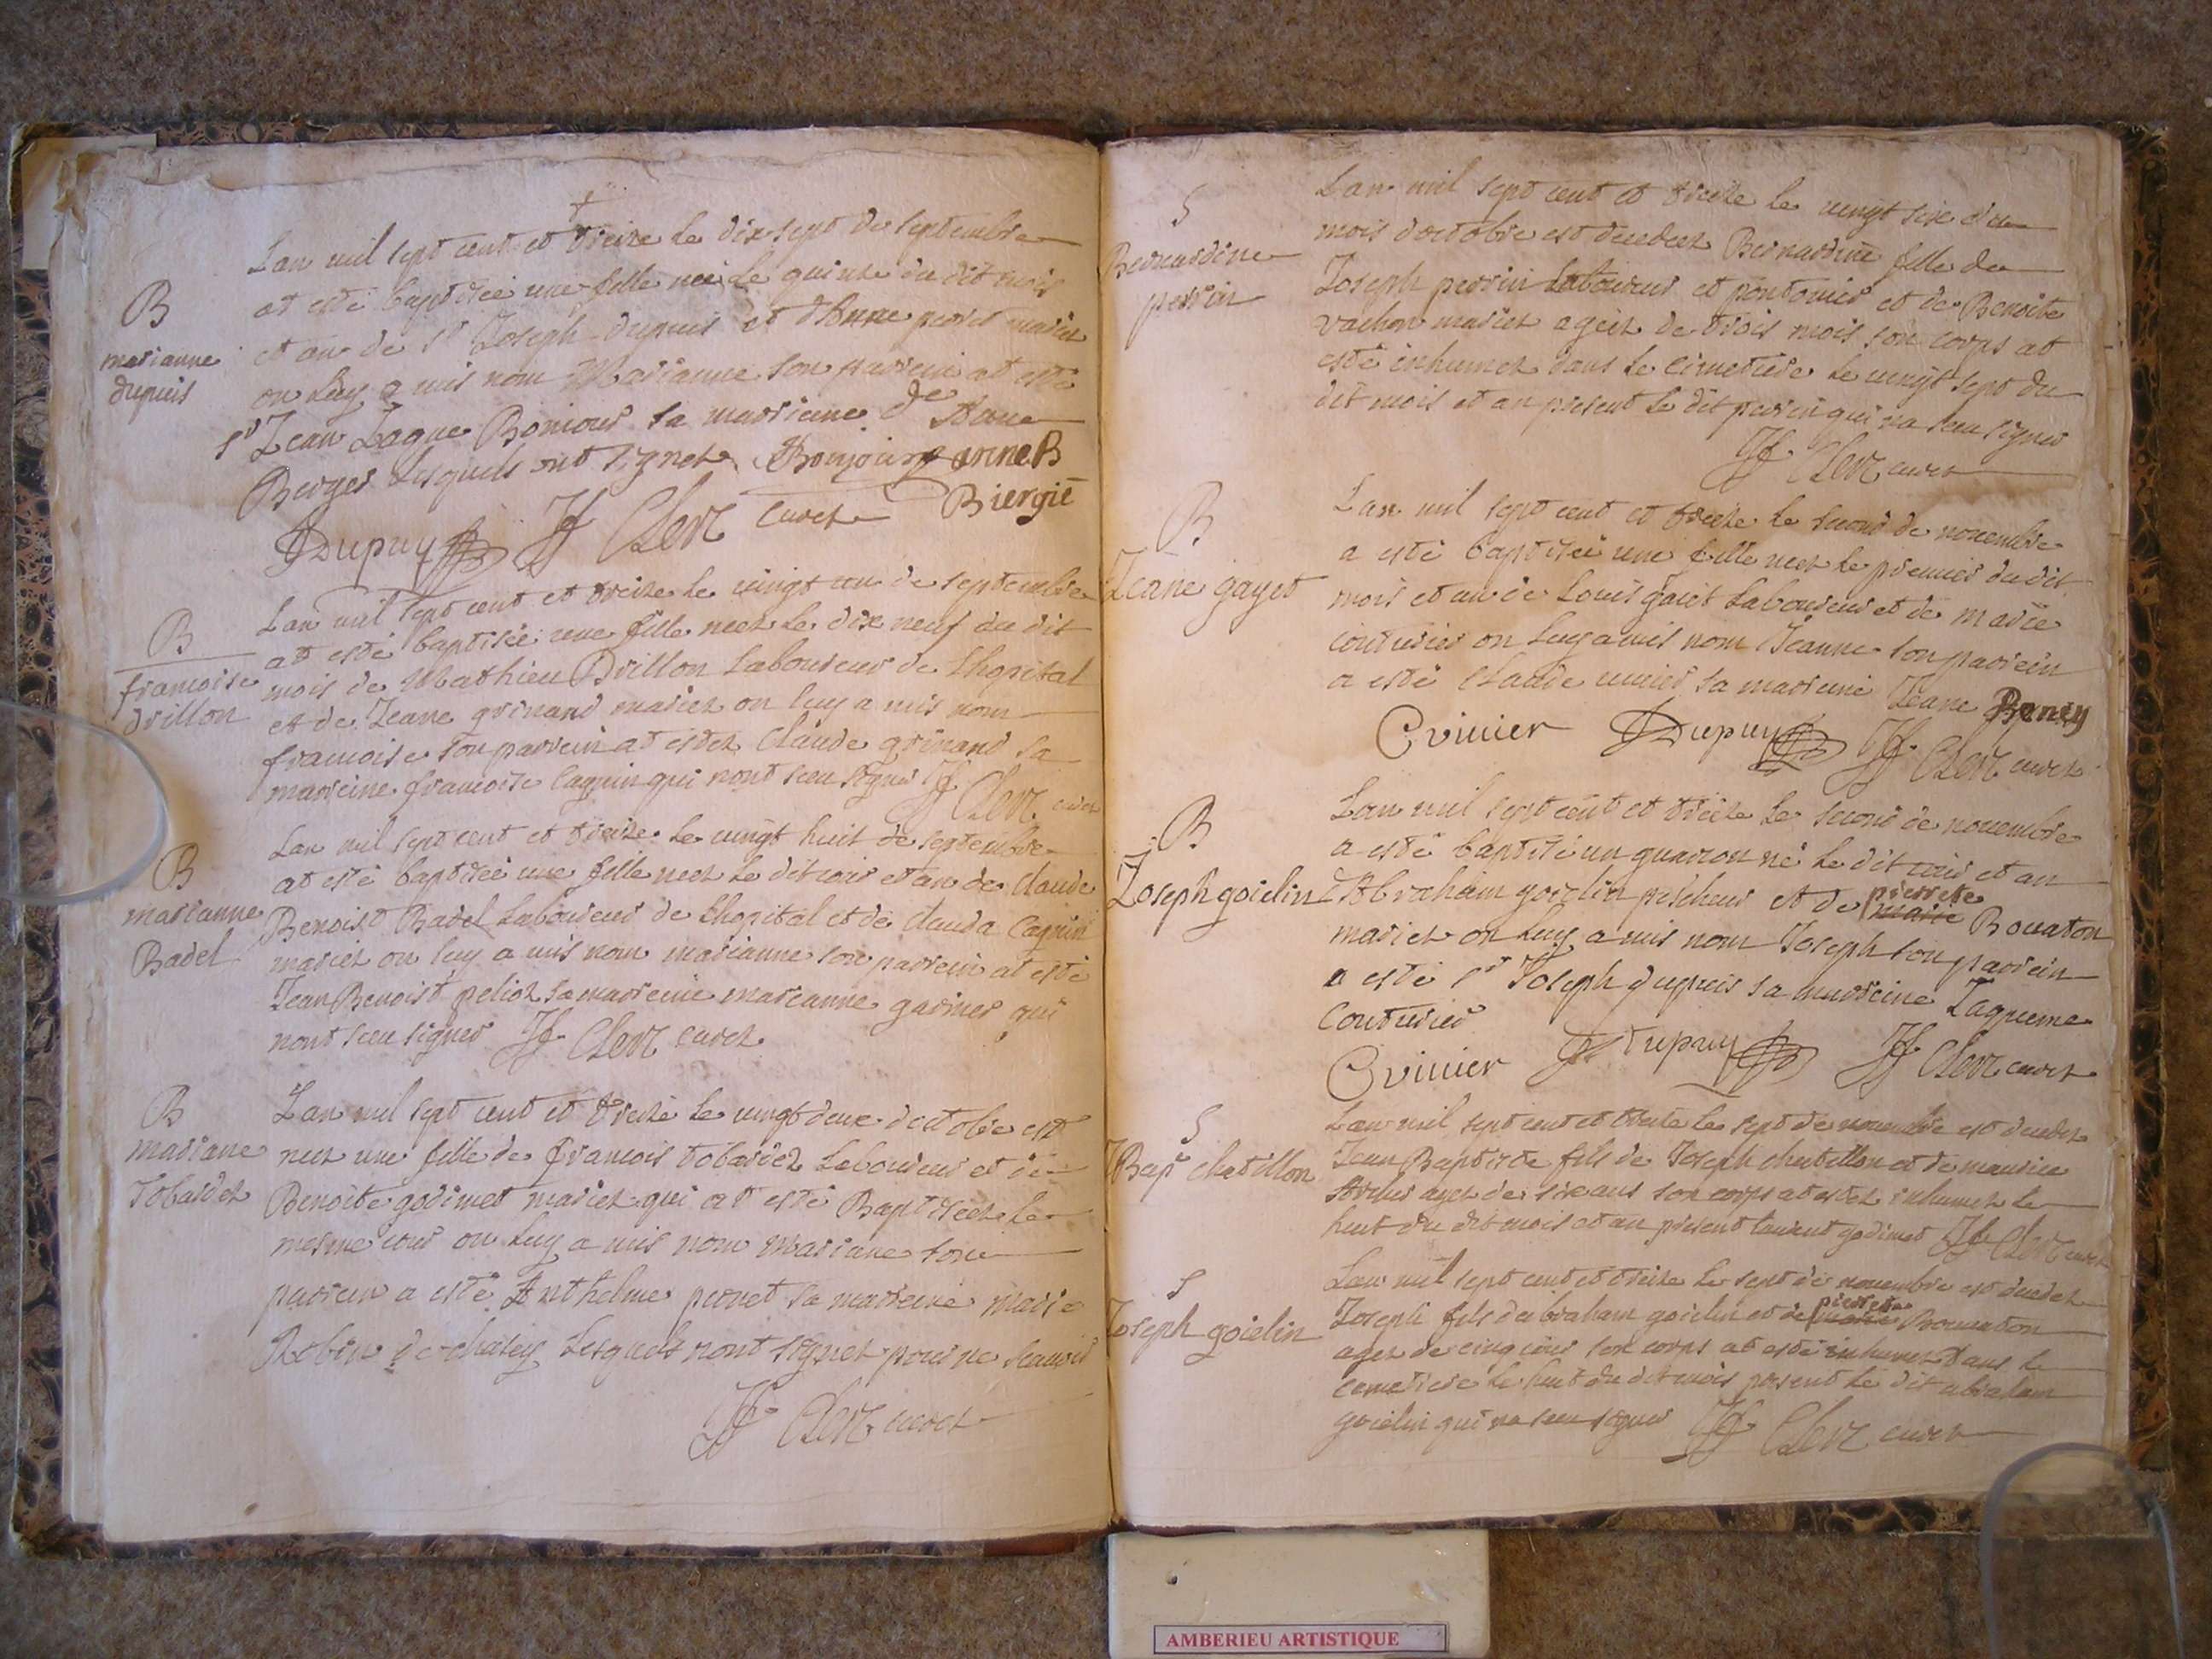 B
marianne
dupuis
Lan mil sept cent et treize le dix sept de septembre
at esté baptisée une fille née le quinze du dit mois
et an de Sr Joseph dupuis et dAnne perret mariez
on luy a mis nom Marianne son parrein at esté
sr Jean Jaque Bonjour sa marreine de Anne
Berger lesquels ont signet Bonjour anne B
Biergie
Dupuy JF Clerc curet
B
francoise
drillon
Lan mil sept cent et treize le vingt un de septembre
at esté baptisée une fille neez le dix neuf du dit
mois de Mathieu Drillon Laboureur de Lhopital
et de Jeane grinand mariez on luy a mis nom
francoise son parrein at estez Claude grinand sa
marreine francoise cagnin qui nont sceu signer JF Clerc curet
B
marianne
Badel
Lan mil sept cent et treize le vingt huit de septembre
at esté baptisée une fille neez le dit iour et an de Claude
Benoist Badel Laboureur de Lhopital et de Clauda Cagnin
mariez on luy a mis nom marianne son parrein at esté
Jean Benoist peliot sa marreine marianne garnier qui
nont sceu signer JF Clerc curet
B
mariane
Tobardez
Lan mil sept cent et treize le vingt deux doctobre est
neez une fille de francois tobardez Laboureur et de
Benoite godimet mariez qui at esté Baptiséez le
mesme iour on luy a mis nom Mariane son
parrein a esté Anthelme peronet sa marreine marie
Robin de chasey Lesquels nont signez pour ne scauoir
JF Clerc curet
S
Bernardine
perrin
Lan mil sept cent et treize le vingt six du
mois doctobre est decedeez Bernardine fille de
Joseph perrin Laboureur et pontonier et de Benoite
vachon mariez ageez de trois mois son corps at
esté inhumez dans le cimetiere le vingt sept du
dit mois et an present le dit perrin qui na sceu signer
JF Clerc curet
B
Jeane gayet
Lan mil sept cent et treize le second de nouembre
a esté baptisée une fille neez le premier du dit
mois et an de Louis gaiet Laboureur et de marie
couturier on luy a mis nom Jeanne son parrein
a esté Claude uuiier sa marreine Jeane Reney
C viuier Dupuy JF Clerc curet
B
Joseph goielin
Lan mil sept cent et treize le second de nouembre
a esté baptisé un guarcon né le dit iour et an
dAbraham goielin pescheur et de pierrete Bouaton
mariez on luy a mis nom Joseph son parrein
a esté sr Joseph dupuis sa marreine Jaqueme
couturier
C viuier Dupuy JF Clerc curet
S
JBapt chatillon
Lan mil sept cent et treize le sept de nouembre est decedez
Jean Baptiste fils de Joseph chatillon et de maurice
agez de six ans son corps at estez inhumez le
huit du dit mois et an present laurent godimet JF Clerc curet
S
Joseph goielin
Lan mil sept cent et treize le sept de nouembre est decedez
Joseph fils dabraham goielin et de pierrete Bouaton
agez de cinq iours son corps at esté inhumez dans le
cemetiere le huit du dit mois present le dit abraham
goielin qui na sceu signer JF Clerc curet
AMBERIEU ARTISTIQUE